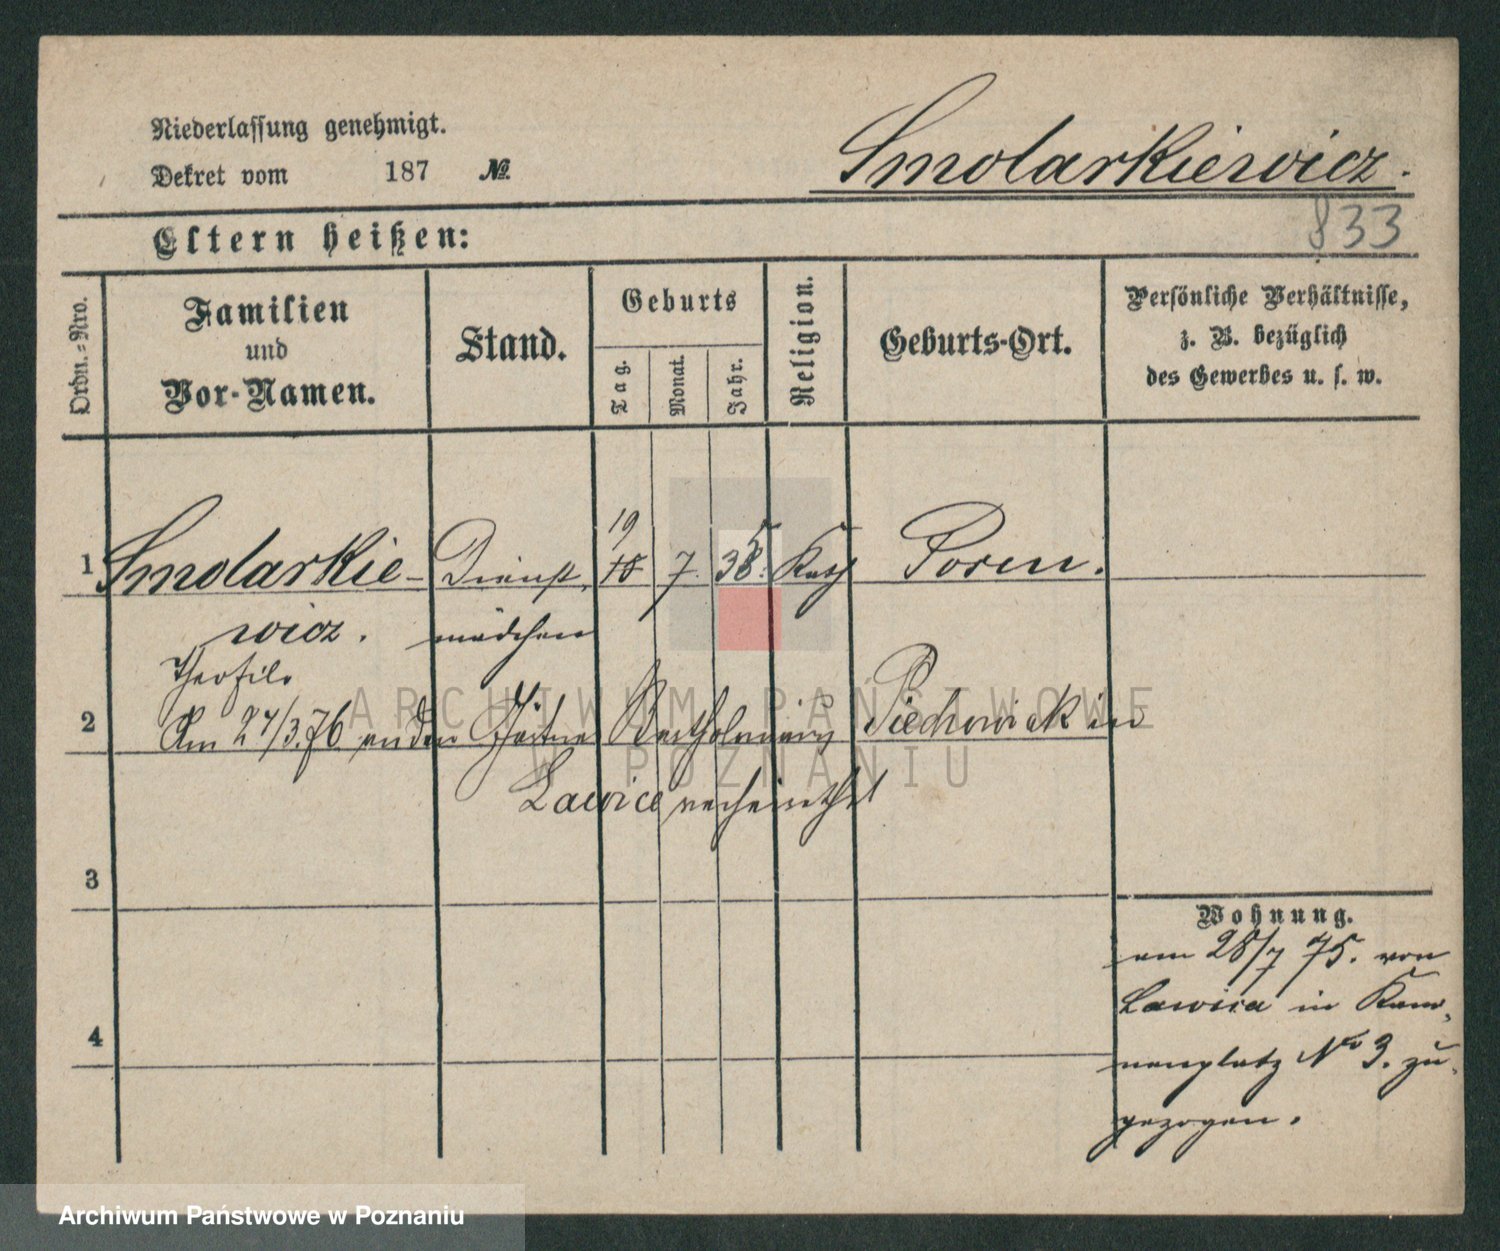 Niederlassung genehmigt.
Dekret vom 187 №
Smolarkiewicz.
833
Eltern heißen:
Ordn.=Nro.
Familien
und
Vor-Namen.
Stand.
Geburts
Tag.
Monat.
Jahr.
Religion.
Geburts-Ort.
Persönliche Verhältnisse,
z. B. bezüglich
des Gewerbes u. s. w.
19
1 Smolarkie- Dienst 18 7. 38. Kath Posen.
wicz. mädchen
Theofile
2 Am 27/3.76 an den Gärtner Bartholomäus Piechowiak in
Lawice verheirathet
3
4
Wohnung.
am 28/7 75. von
Lawica in Kano,
nenplatz No 3. zu,
gezogen.
ARCHIWUM PAŃSTWOWE
W POZNANIU
Archiwum Państwowe w Poznaniu